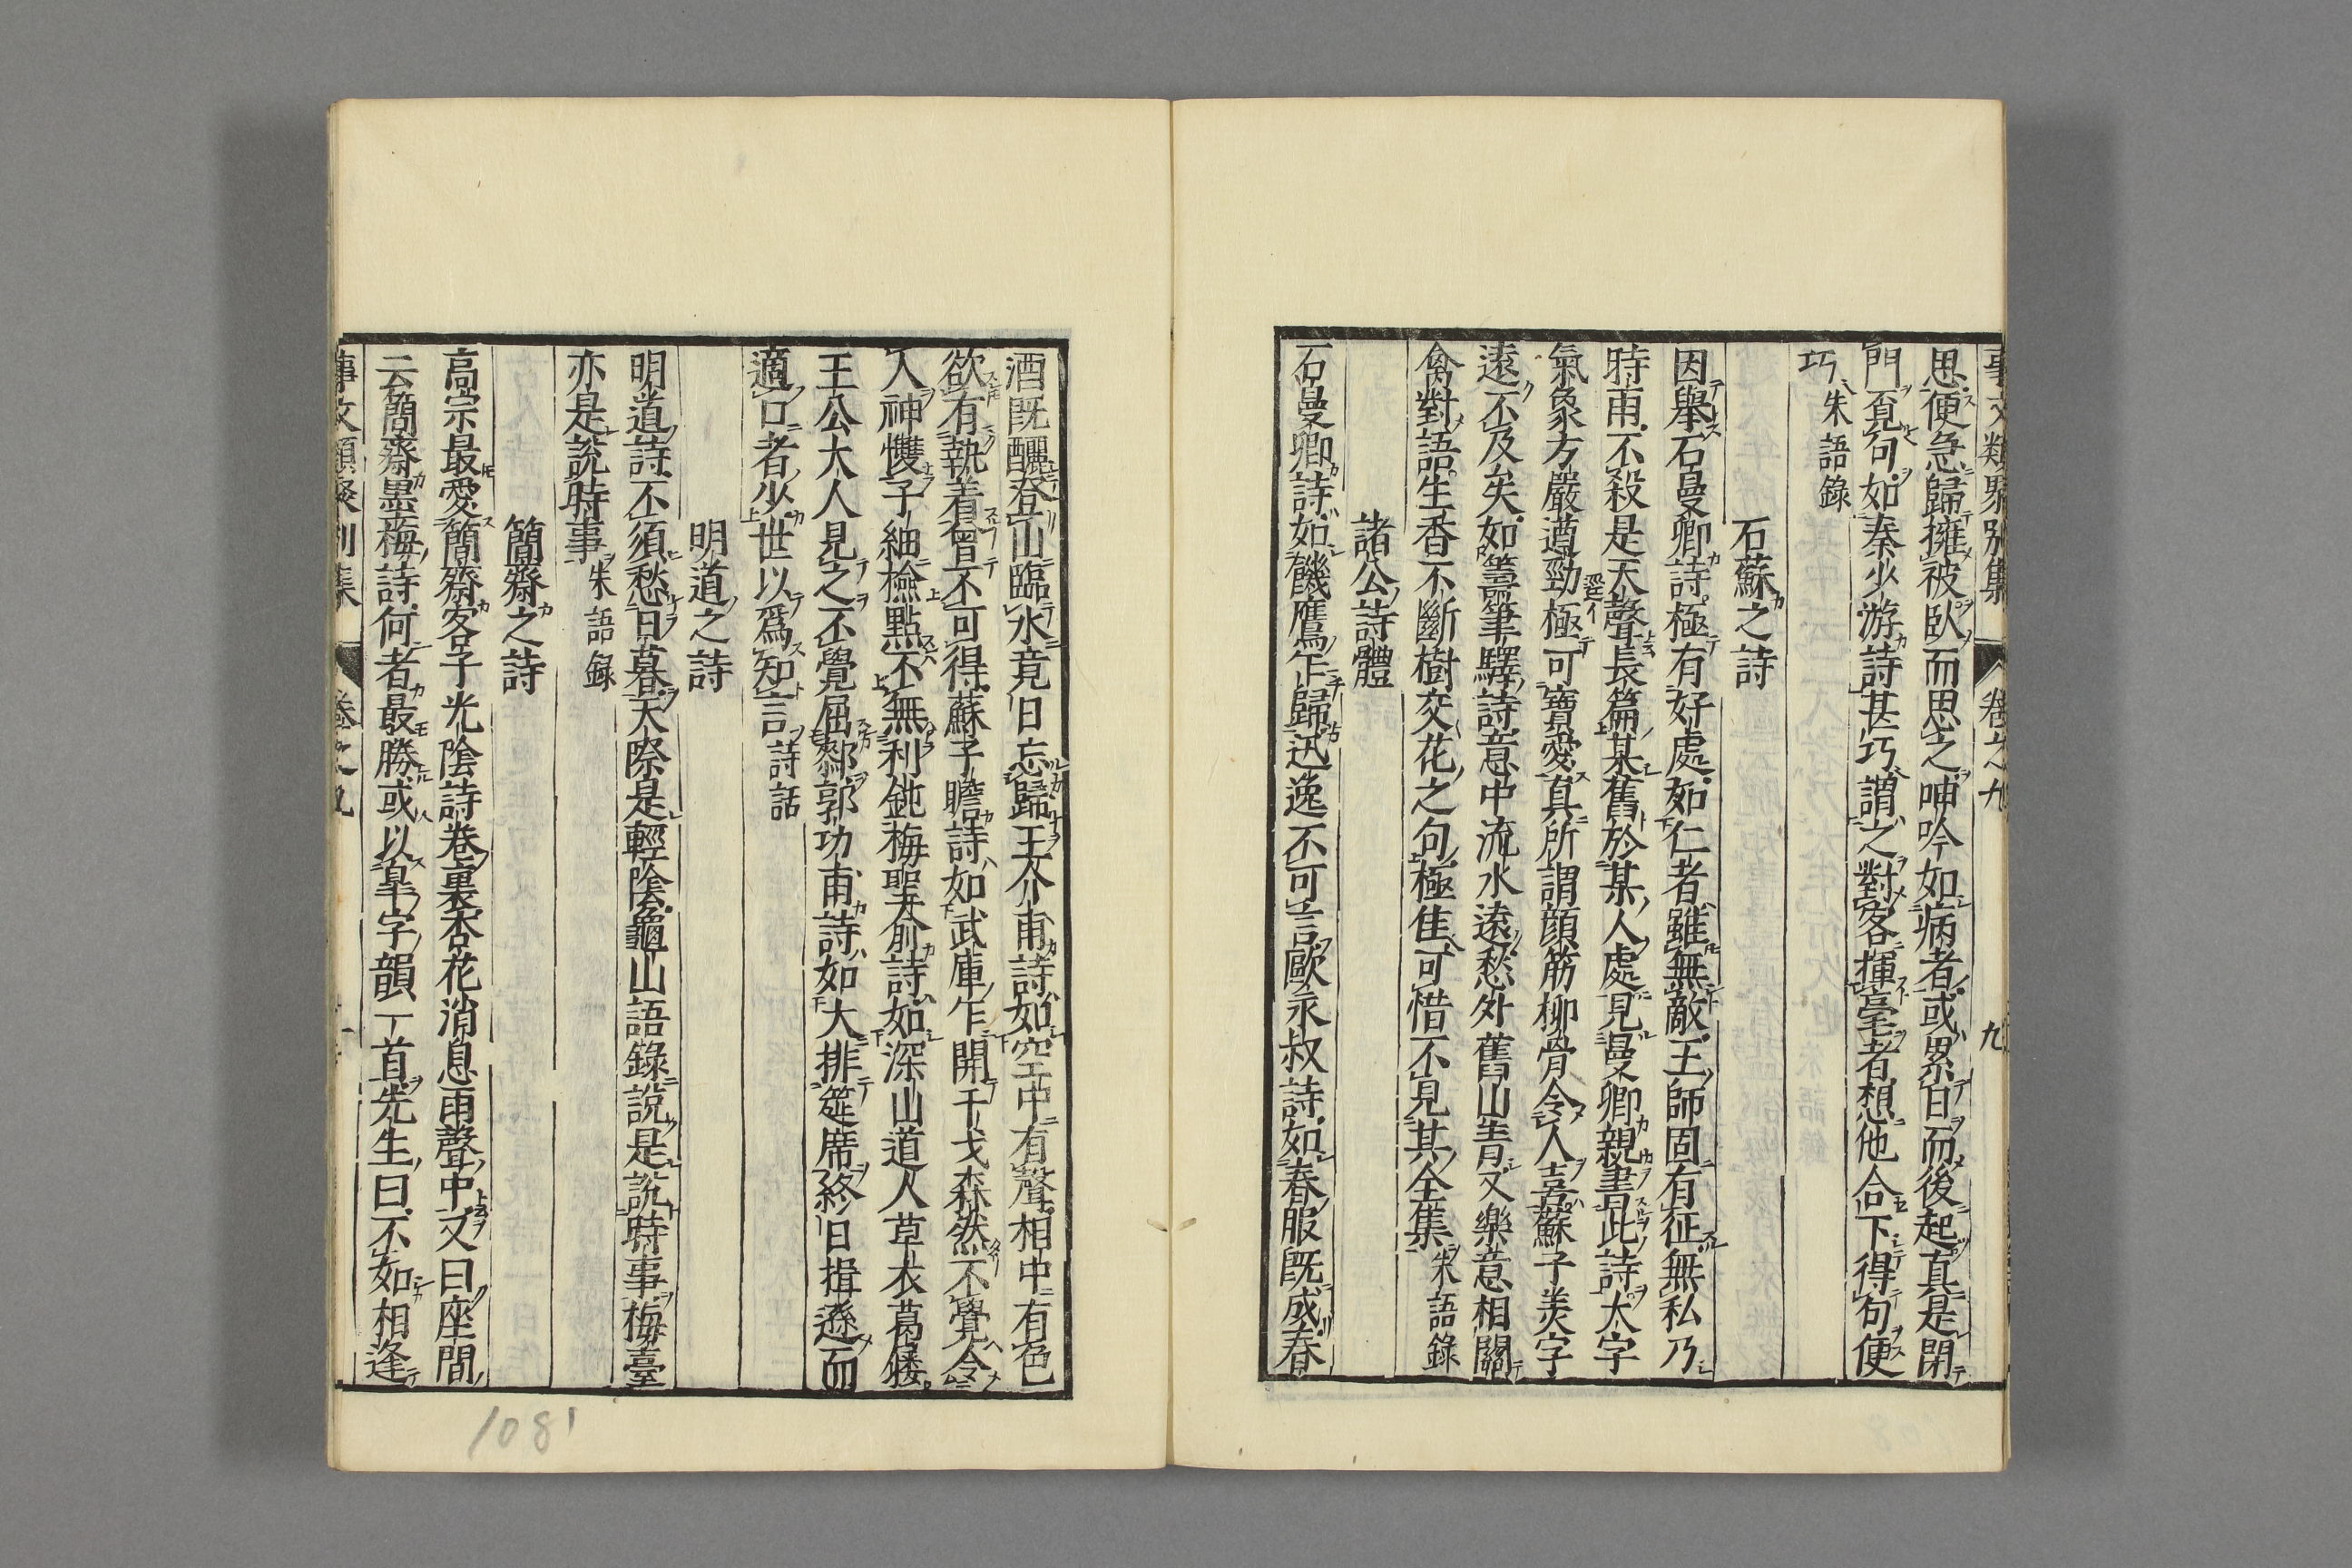 事文類聚別集 卷之九 九
思便急歸擁被臥而思之呻吟如病者或累日而後起真是閉
門覓句如秦少游詩甚巧謂之對客揮毫者想他合下得句便
巧朱語錄
石蘇之詩
因舉石曼卿詩極有好處如仁者雖無敵王師固有征無私乃
時雨不殺是天聲長篇某舊於某人處見曼卿親書此詩大字
氣象方嚴遒勁極可寶愛真所謂顏筋柳骨今人喜蘇子美字
遠不及矣如籌筆驛詩意中流水遠愁外舊山青又樂意相關
禽對語生香不斷樹交花之句極佳可惜不見其全集朱語錄
諸公詩體
石曼卿詩如饑鷹乍歸迅逸不可言歐永叔詩如春服既成春
酒既釃登山臨水竟日忘歸王介甫詩如空中有聲相中有色
欲有執着曾不可得蘇子瞻詩如武庫乍開干戈森然不覺令
人神㦬子細檢點不無利鈍梅聖俞詩如深山道人草衣葛屨
王公大人見之不覺屈𰯼郭功甫詩如大排筵席終日揖遜而
適口者少世以爲知言詩話
明道之詩
明道詩不須愁日暮天際是輕陰龜山語錄說是說時事梅臺
亦是說時事朱語錄
簡齋之詩
高宗最愛簡齋客子光陰詩卷裏杏花消息雨聲中又曰座間
云簡齋墨梅詩何者最勝或以皐字韻一首先生曰不如相逢
事文類聚別集 卷之九
1081